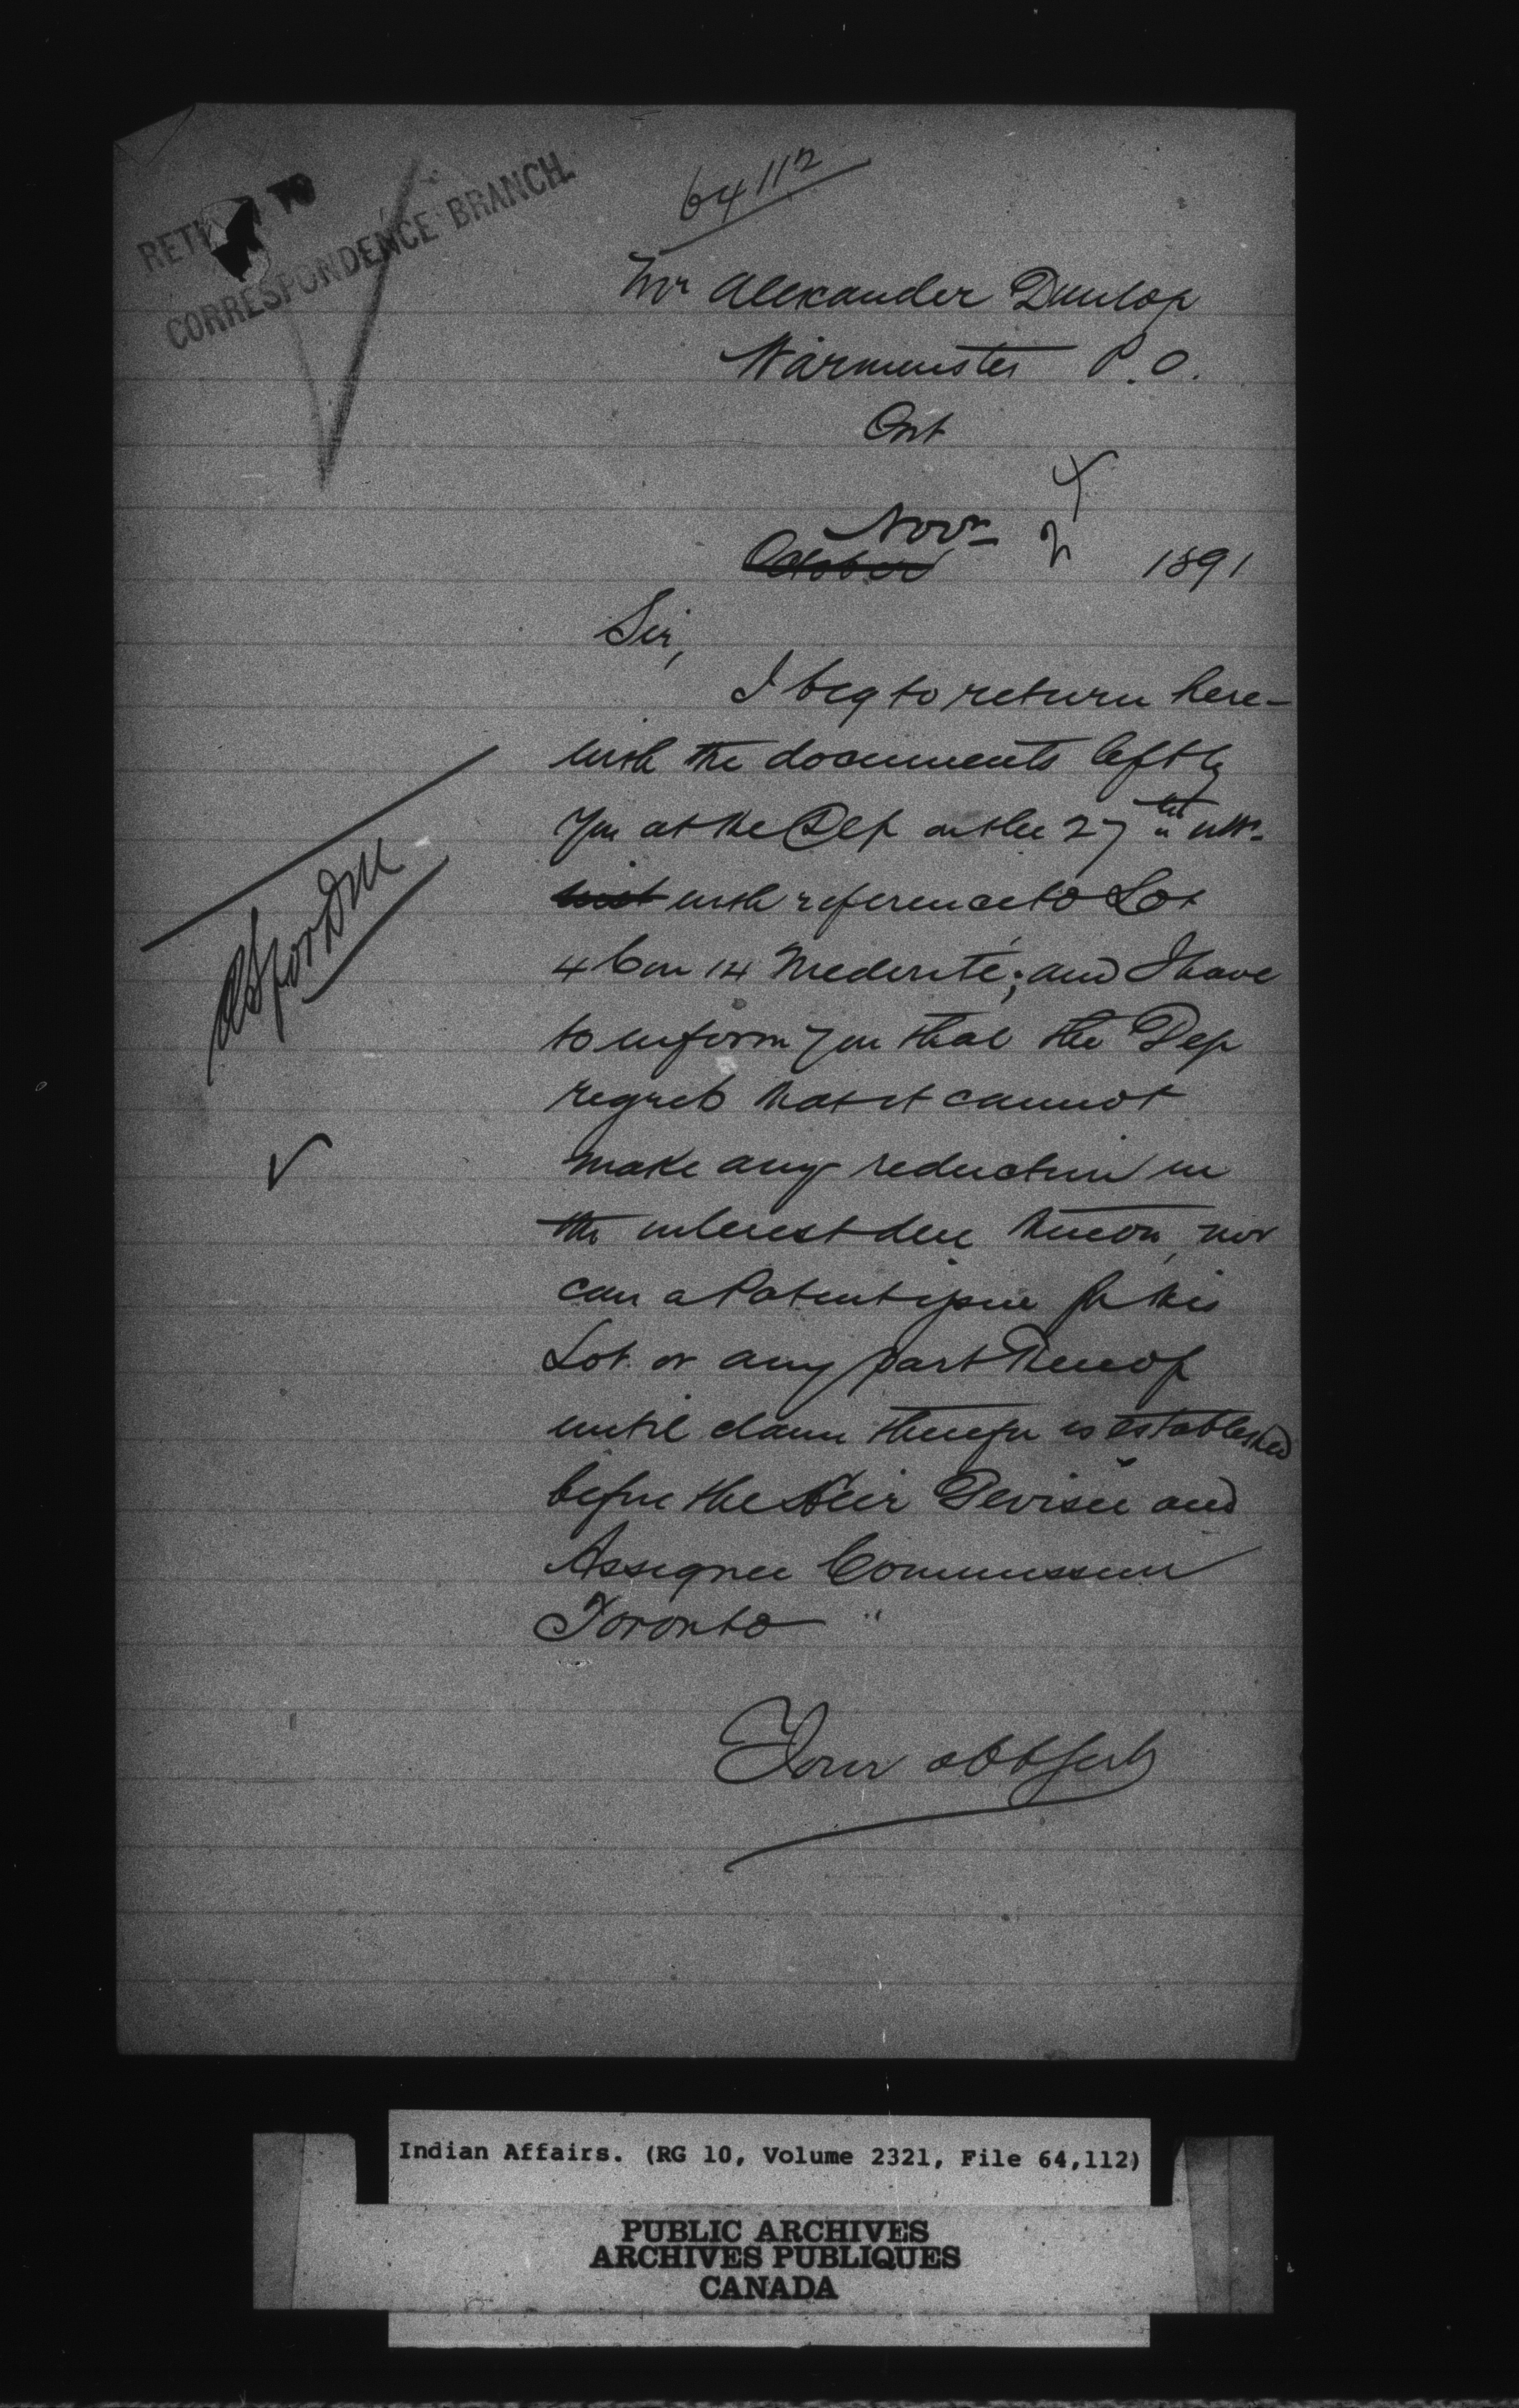 RETURN TO
CORRESPONDENCE BRANCH.
64112
Mr Alexander Dunlop
Warminster P.O.
Ont
Novr 2 1891
October
Sir,
I beg to return here-
with the documents left by
you at the Dep on the 27th ulto
inst with reference to Lot
4 Con 14 Medonte; and I have
to inform you that the Dep
regrets that it cannot
make any reduction in
the interest due thereon, nor
can a Patent issue for this
Lot or any part thereof
until claim therefor is established
before the Heir Devisee and
Assignee Commission
Toronto "
Your obt servt
Indian Affairs. (RG 10, Volume 2321, File 64,112)
PUBLIC ARCHIVES
ARCHIVES PUBLIQUES
CANADA